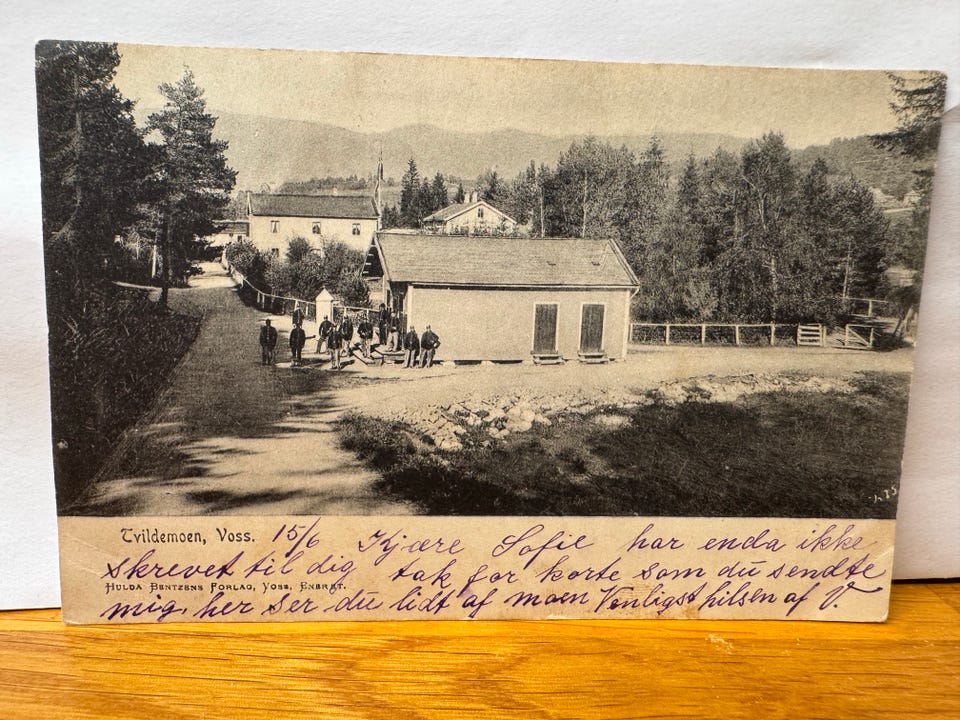 Tvildemoen, Voss. 15/6 Kjære Sofie har enda ikke
skrevet til dig tak for korte som du sendte
HULDA BENTZENS FORLAG, VOSS, ENERET.
mig, her ser du lidt af moen Venligst hilsen af V.